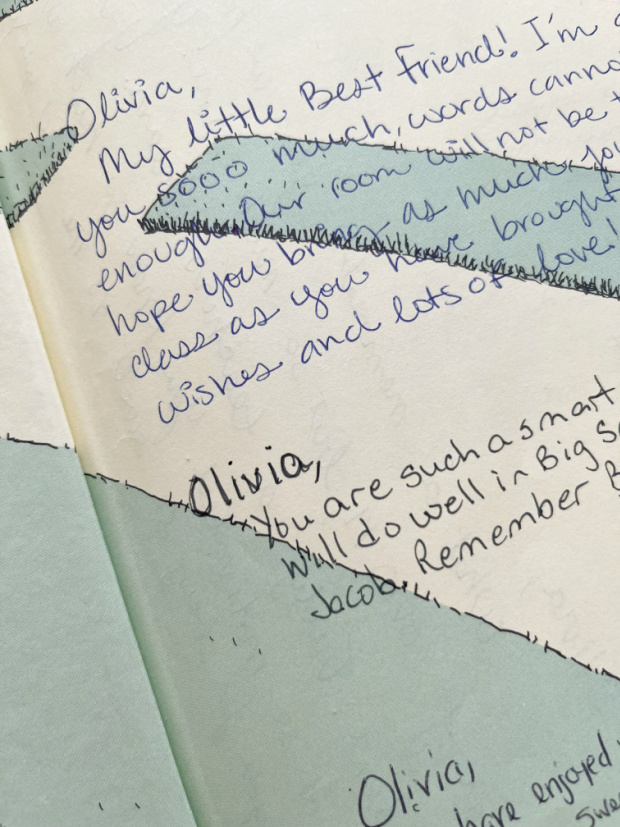 Olivia,
My little Best Friend! I'm
you sooo much, words cannot
enough. Our room will not be
hope you bring as much joy
class as you have brought
wishes and lots of love!
Olivia,
You are such a smart
will do well in Big
Jacob. Remember
Olivia,
have enjoyed